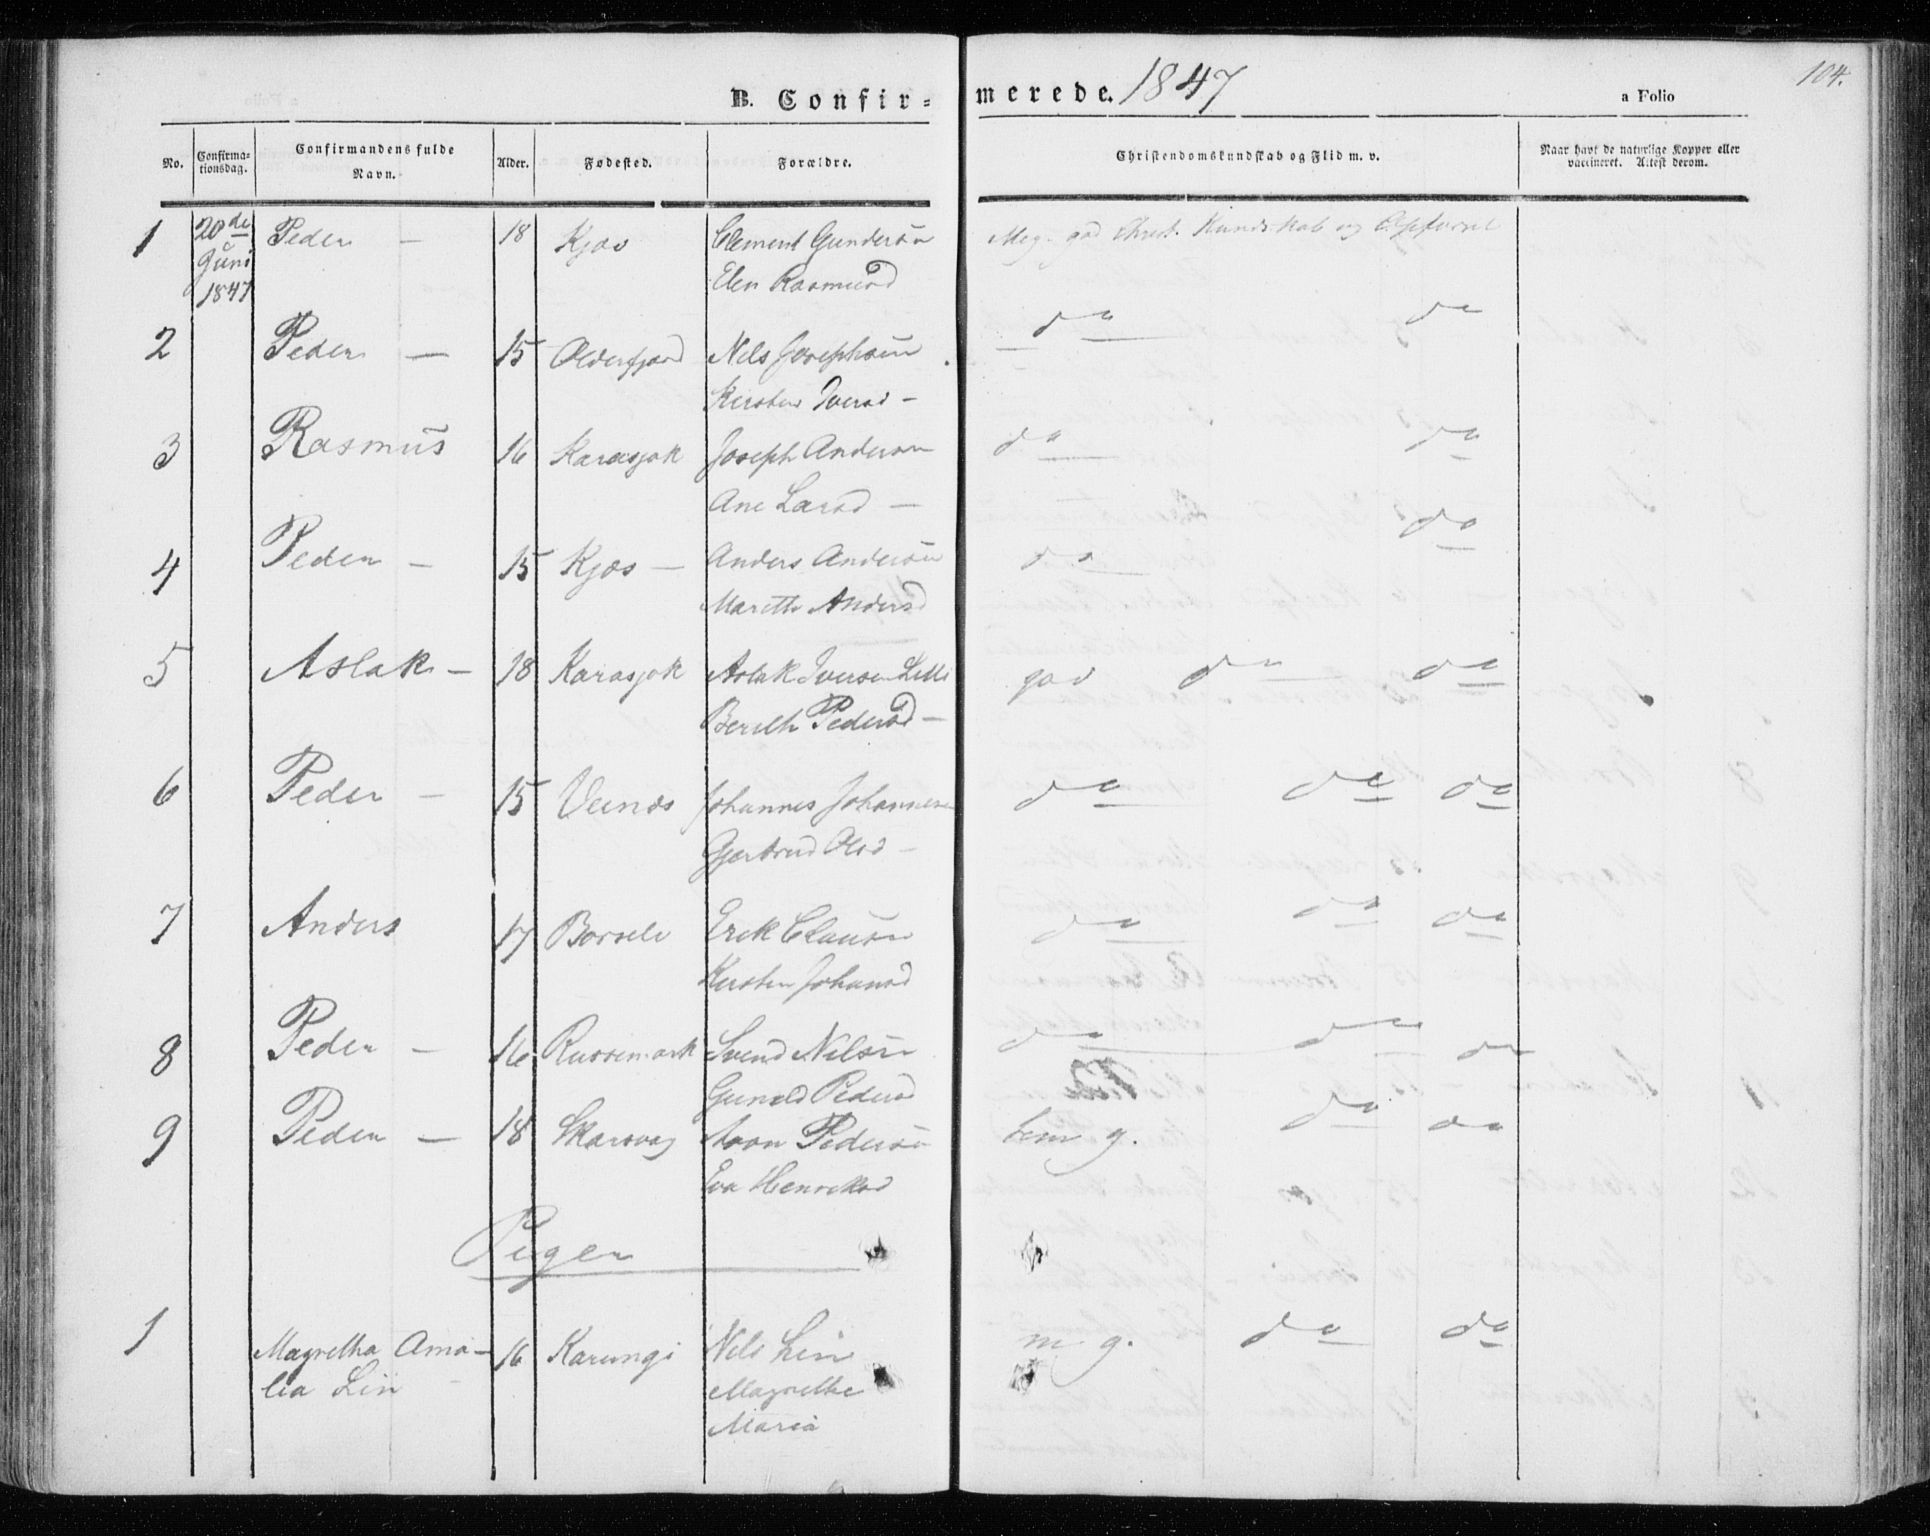 B. Confir-
merede. 1847
a Folio
104.
No.
Confirma-
tionsdag.
Confirmandens fulde
Navn.
Alder.
Fødested.
Forældre.
Christendomskundskab og Flid m. v.
Naar havt de naturlige Kopper eller
vaccineret. Attest derom.
1 20de Peder — 18 Kjæs Clement Gundersön Meg. god Christ. Kundskab og Opførsel
Juni
1847 Elen Rasmusd
2 Peder — 15 Olderfjord Nils Josephsen do do
Kirsten Iversd —
3 Rasmus 16 Karasjok Joseph Andersen do do
Ane Larsd —
4 Peder — 15 Kjæs — Anders Andersön do do
Marith Andersd
5 Aslak — 18 Karasjok Aslak Iversen god do do
Berith Pedersd —
6 Peder — 15 Veinæs Johannes Johannesen do do do
Gjertrud Olsd —
7 Anders 17 Børselv Erik Clausön do do do
Kirsten Johansd
8 Peder — 16 Russemark Svend Nilsön do do do
Pedersd
9 Peder — 18 Skarsvag Aron Pedersön tem g. do do
Eva Henriksd
Piger
1 Magretha Ama- 16 Karungi Nils Lin m g. do do
lia Lin Magrethe
Maria